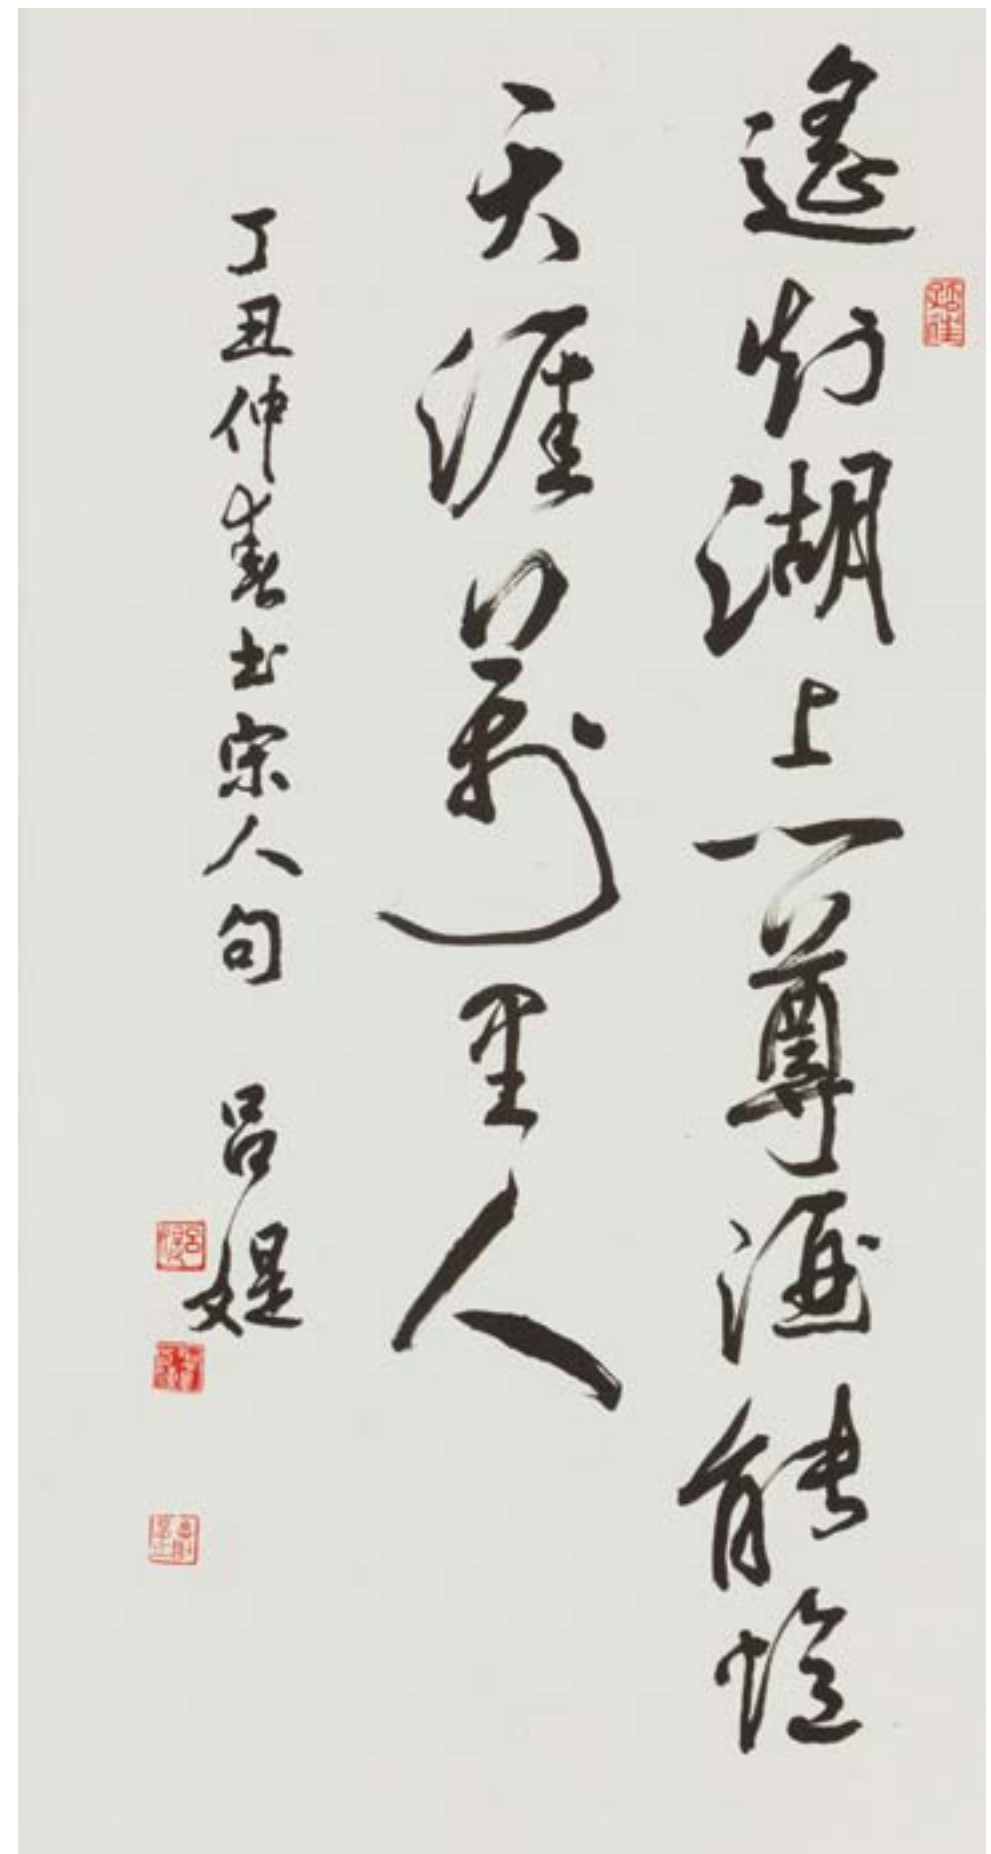 遙知湖上一尊酒能憶
天涯萬里人
丁丑仲春書宋人句 呂媞